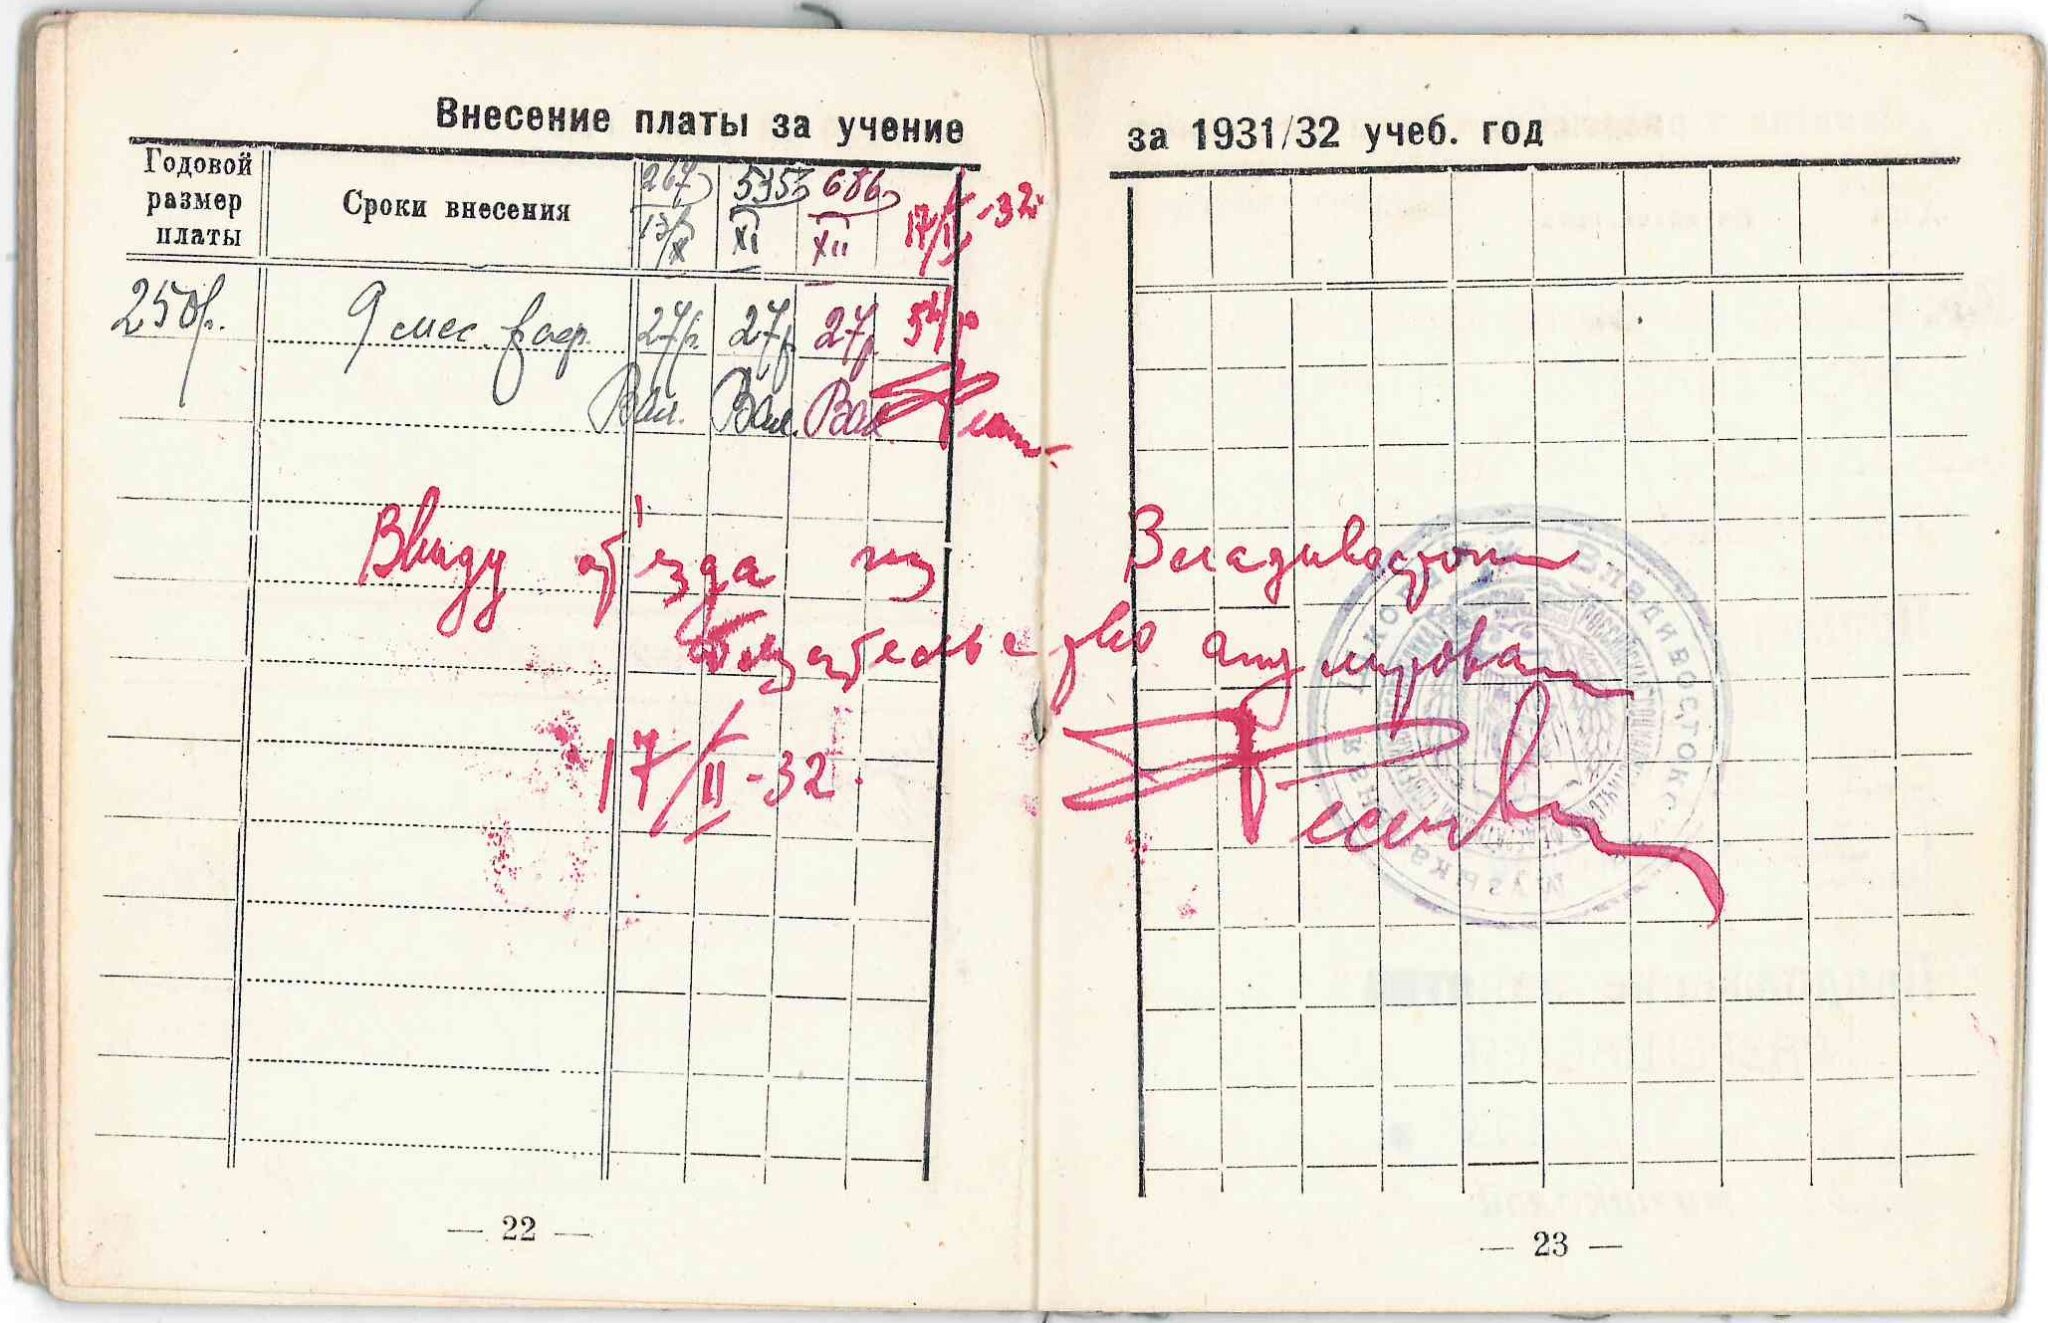 Внесение платы за учение за 1931/32 учеб. год
Годовой размер платы
Сроки внесения
267 13/X
535 XI
686 XII
17/II-32
250р. 9 мес. 27р. 27р. 27р. 54р
Вал. Вал. Вал
Ввиду от'езда из Владивостока
обязательство анулировано
17/II-32.
— 22 —
— 23 —